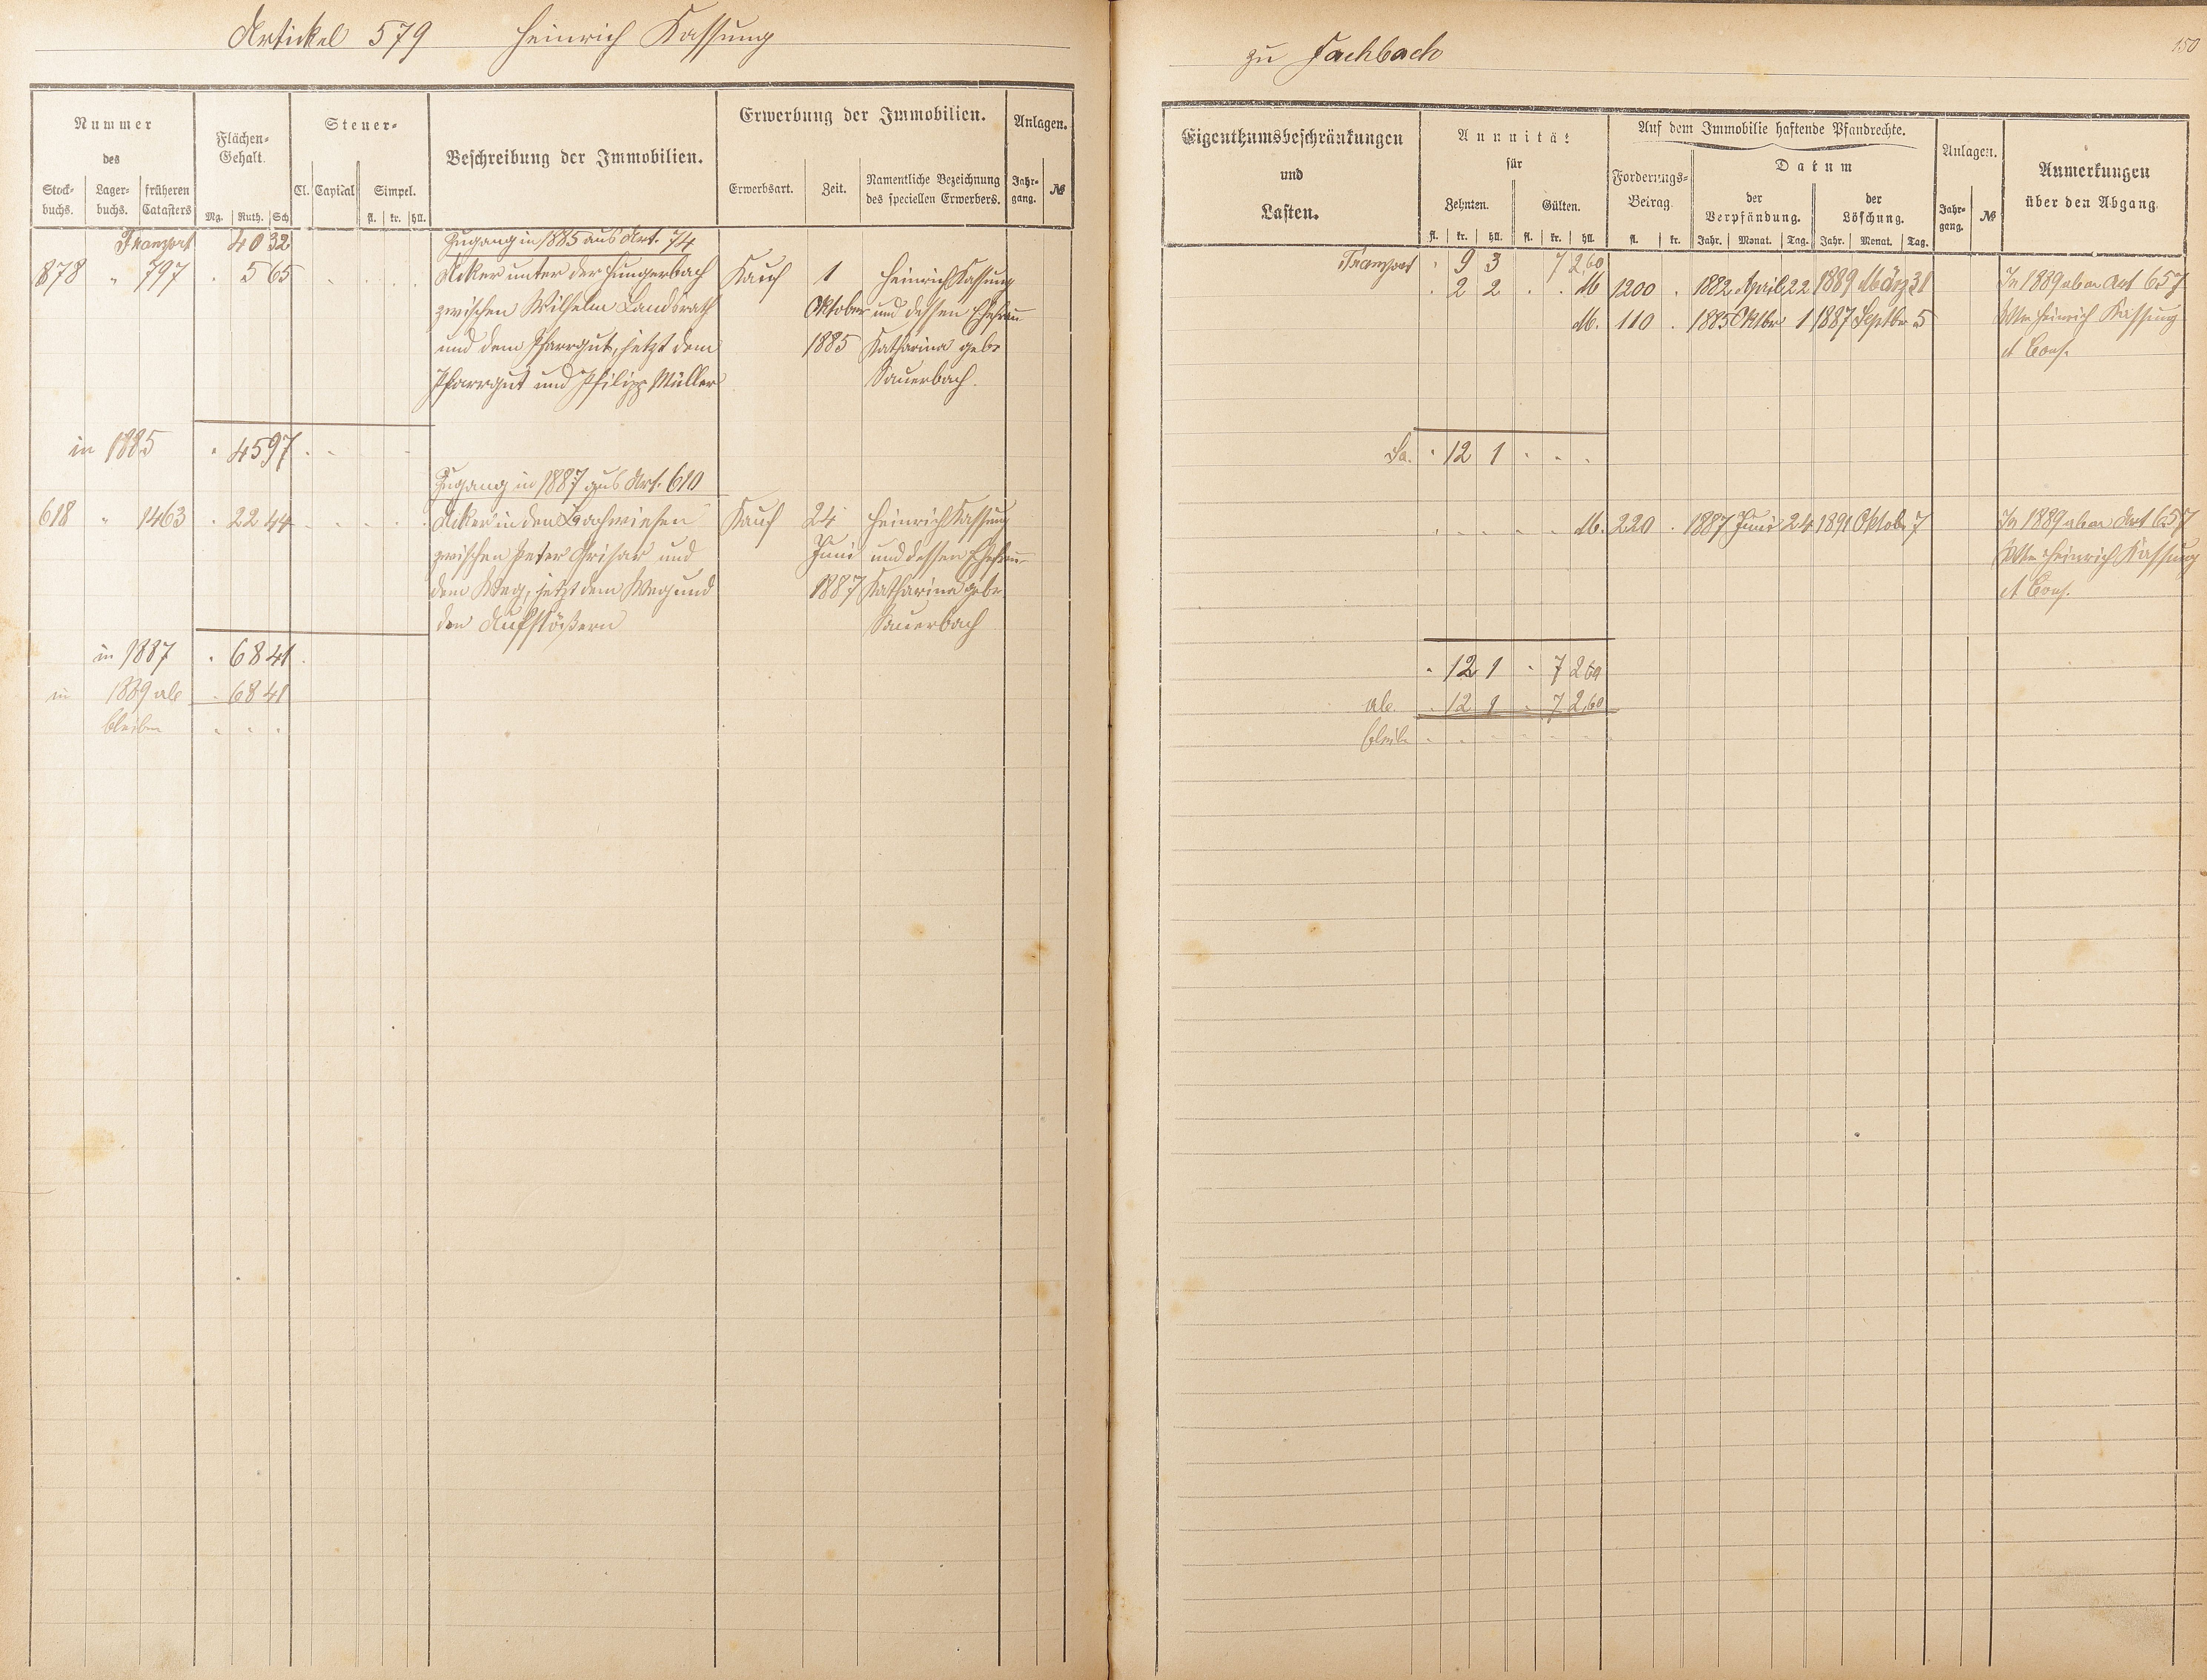 Artickel 579 Heinrich Kassung
zu Fachbach
150
Nummer
des
Stock-
buchs.
Lager-
buchs.
früheren
Catasters
Flächen-
Gehalt.
Mg. Ruth. Sch
Steuer-
Cl. Capital Simpel.
fl. kr. hll.
Beschreibung der Immobilien.
Erwerbung der Immobilien.
Erwerbsart. Zeit. Namentliche Bezeichnung
des speciellen Erwerbers.
Anlagen.
Jahr-
gang. №
Transport 40 32
Zugang in 1885 aus Art. 74
878 " 797 . 5 65 Acker unter der Hungerbach Kauf 1 Heinrich Kassung
zwischen Wilhelm Landsrath Oktober und dessen Ehefrau
und dem Pfarrgut, jetzt dem 1885 Katharina geb.
Pfarrgut und Philipp Müller Sauerbach.
in 1885 . 45 97
Zugang in 1887 aus Art. 610
618 " 1463 . 22 44 Acker in den Bachwiesen Kauf 24 Heinrich Kassung
zwischen Peter Grisar und Juni und dessen Ehefrau
dem Weg, jetzt dem Weg und 1887 Katharina geb.
den Aufstößern Sauerbach
in 1887 . 68 41
in 1889 ab . 68 41
bleiben . . .
Eigenthumsbeschränkungen
und
Lasten.
Annuität
für
Zehnten. Gülten.
fl. kr. hll. fl. kr. hll.
Auf dem Immobilie haftende Pfandrechte.
Forderungs-
Betrag.
fl. kr.
Datum
der
Verpfändung.
Jahr. Monat. Tag.
der
Löschung.
Jahr. Monat. Tag.
Anlagen.
Jahr-
gang. №
Anmerkungen
über den Abgang.
Transport . 9 3 7 2,60
. 2 2 . . M 1200 . 1882 April 22 1889 März 31 In 1889 ab an Art 657
M. 110 . 1885 Oktbr 1 1887 Septbr 5 Wtw Heinrich Kassung
et Cons.
Sa. . 12 1 . . .
. . . . . M. 220 . 1887 Juni 24 1891 Oktob. 7 In 1889 ab an Art 657
Wtw Heinrich Kassung
et Cons.
. 12 1 . 7 2,60
ab . 12 1 . 7 2,60
bleib.